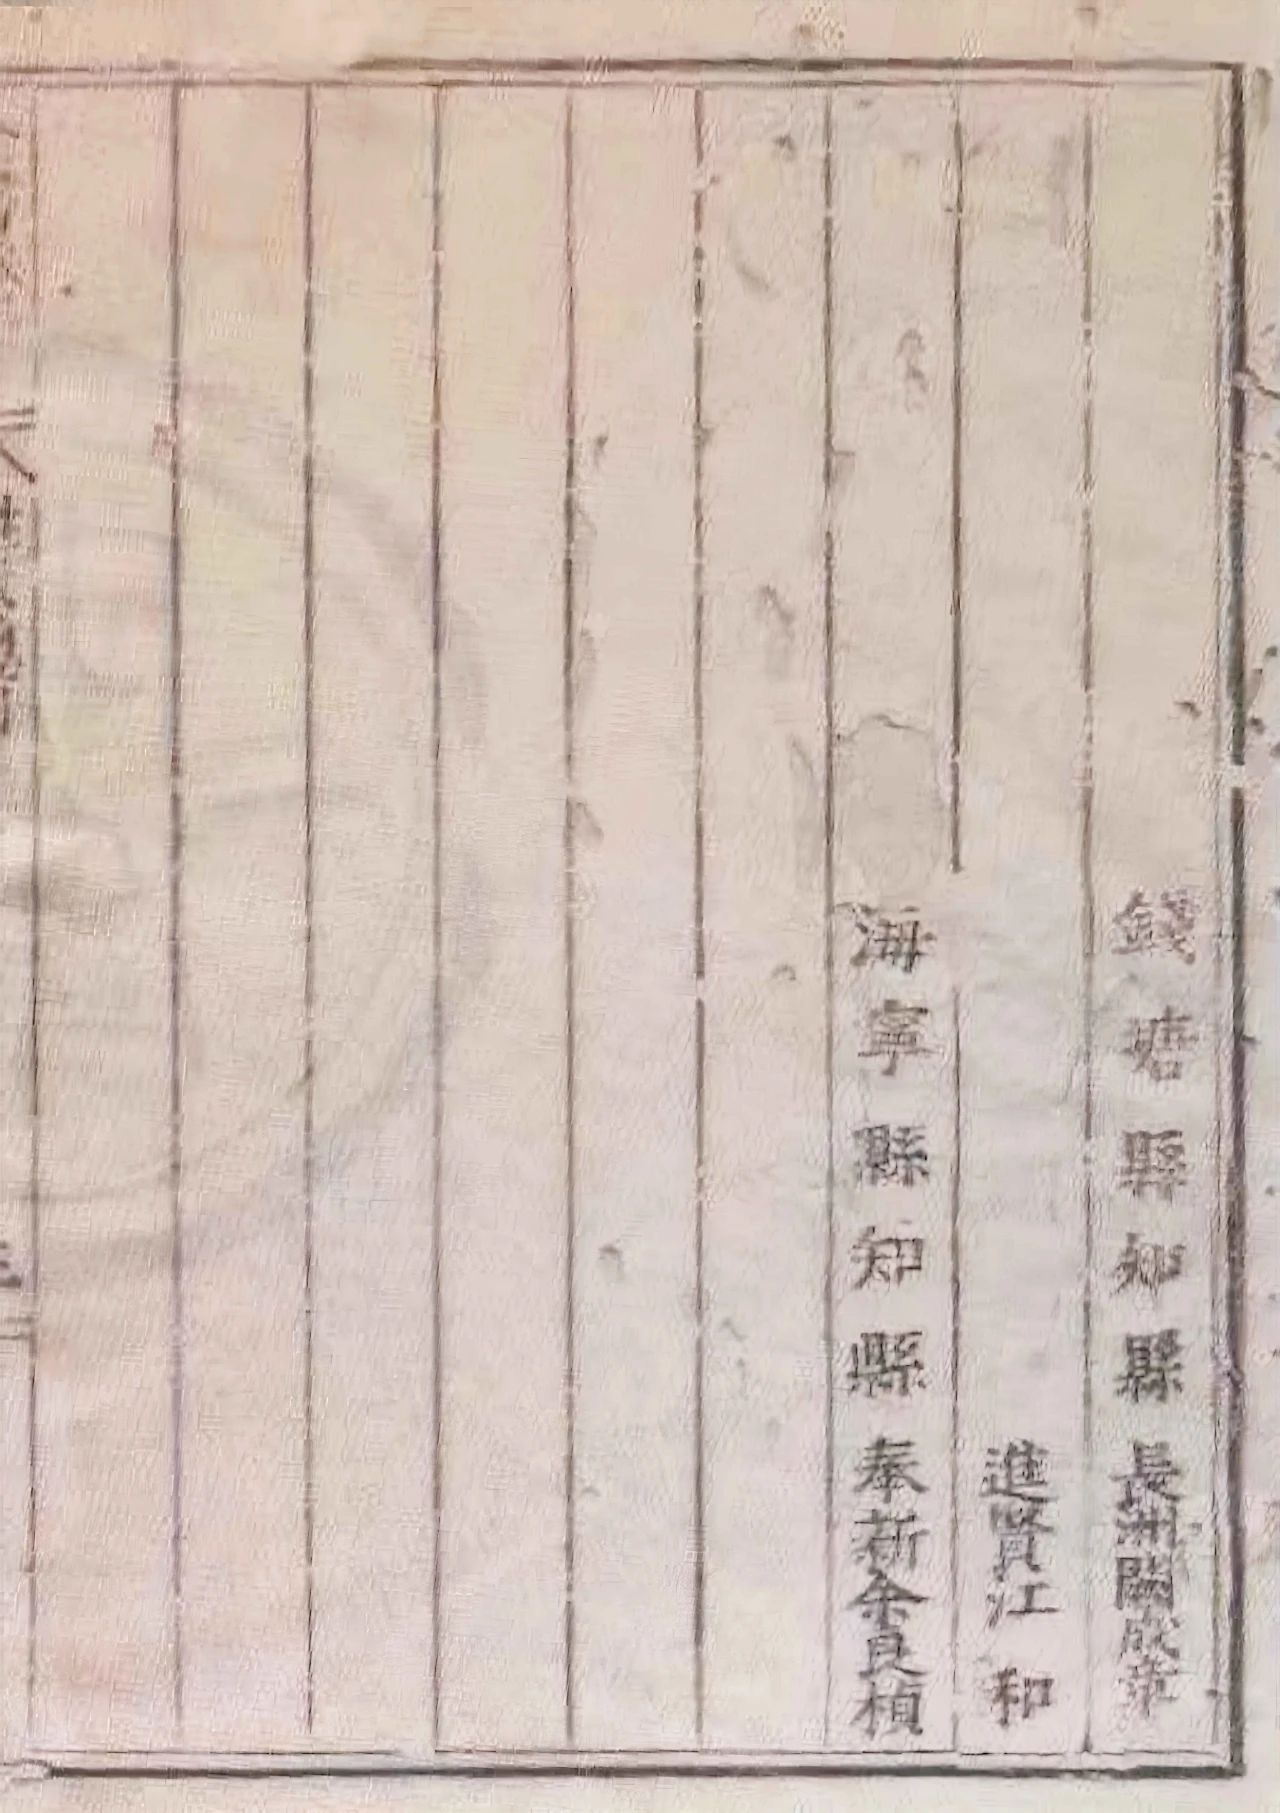 錢塘縣知縣長洲關成章
進賢江和
海寧縣知縣奉新余良楨